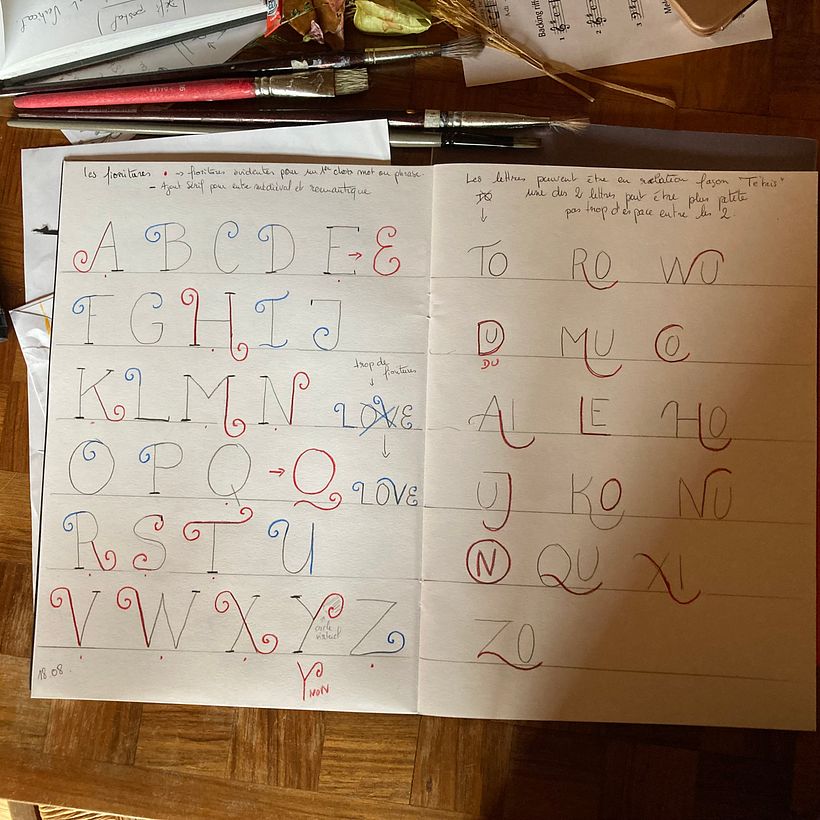 Les fioritures • → fioritures évidentes pour un 1er choix mot ou phrase.
- Ajout sérif pour entre médiéval et romantique
A B C D E → E
F G H I J
K L M N
trop de fioritures
LOVE
O P Q → Q
LOVE
R S T U
V W X Y Z
cercle
Y NON
18.08.
Les lettres peuvent être en relation façon "Tetris"
une des 2 lettres peut être plus petite
pas trop d'espace entre les 2.
TO RO WU
DU MU CO
DU
AI LE HO
UJ KO NU
ON QU XI
ZO
Backing riff
1
2
3